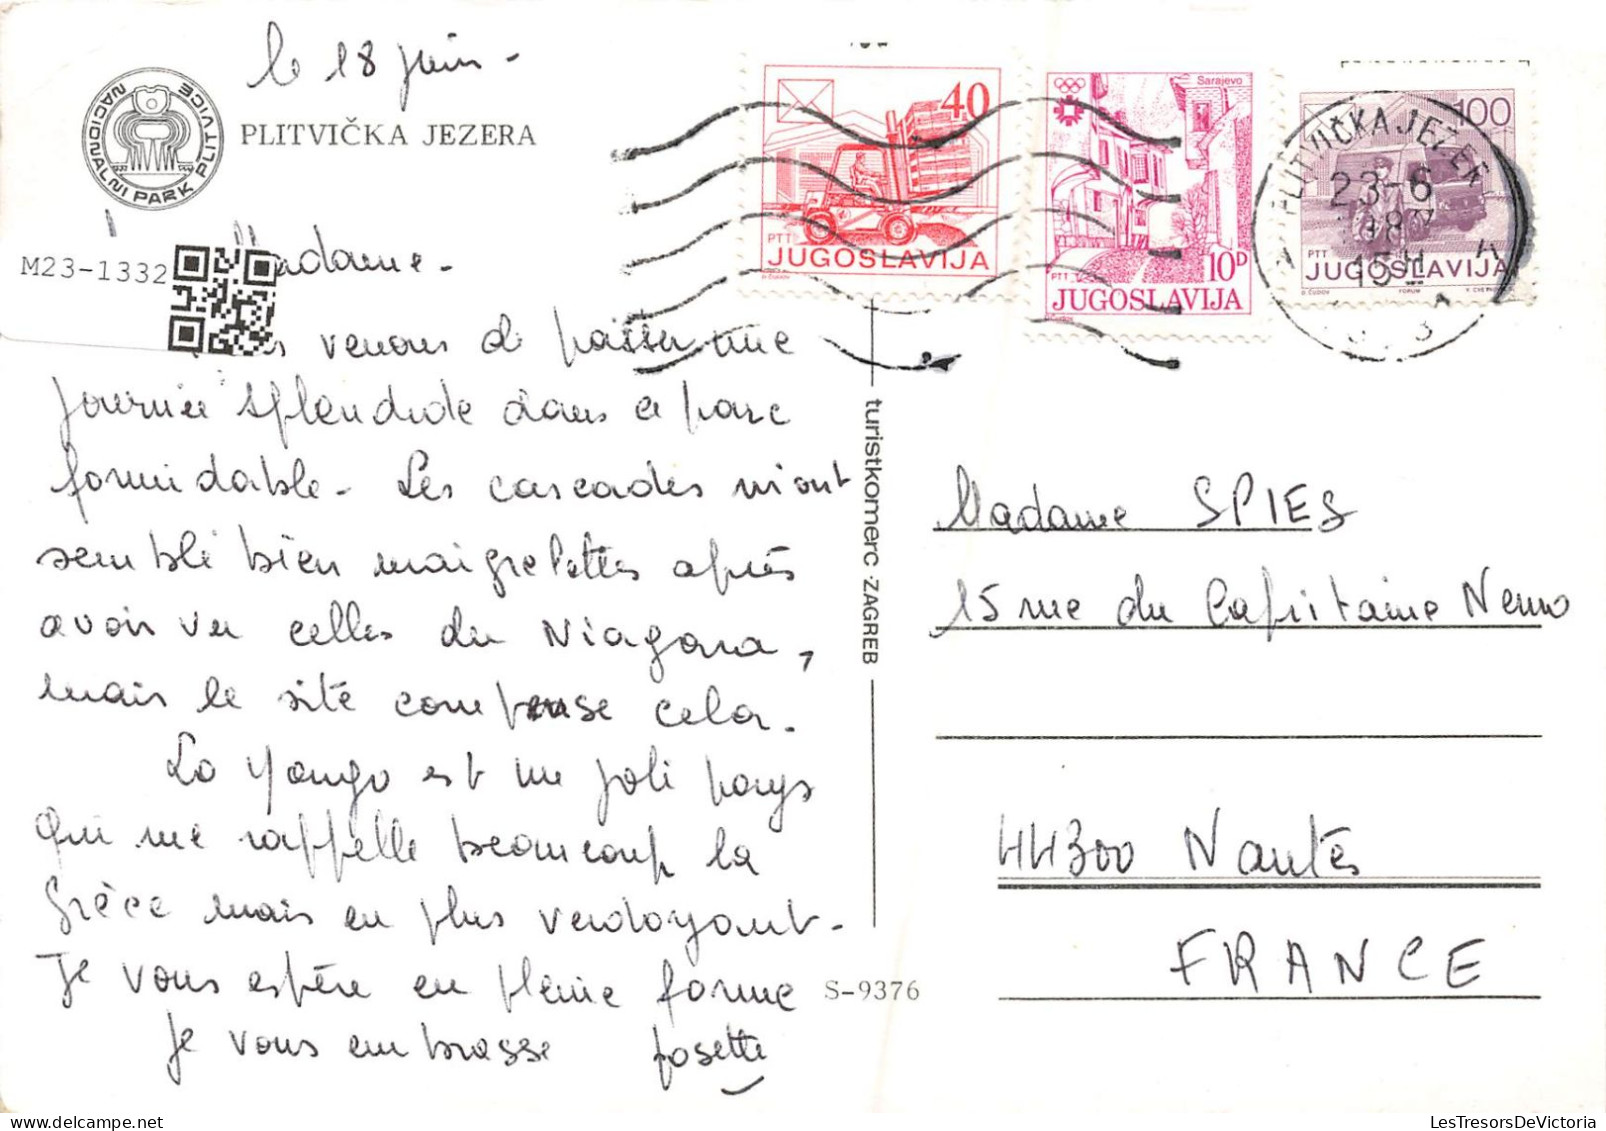 le 18 juin -
NACIONALNI PARK PLITVICE
PLITVIČKA JEZERA
M23-1332
Madame -
venons de passer une
journée splendide dans ce parc
formidable - Les cascades m'ont
semblé bien maigrelettes après
avoir vu celles du Niagara,
mais le site compense cela.
La Yougo est un joli pays
qui me rappelle beaucoup la
Grèce mais en plus verdoyant -
Je vous espère en pleine forme
Je vous embrasse Josette
S-9376
turistkomerc ZAGREB
40
PTT
JUGOSLAVIJA
Sarajevo
10D
PTT
JUGOSLAVIJA
100
PTT
JUGOSLAVIJA
PLITVIČKA JEZERA
23-6
15
Madame SPIES
15 rue du Capitaine Nemo
44300 Nantes
FRANCE
LesTresorsDeVictoria